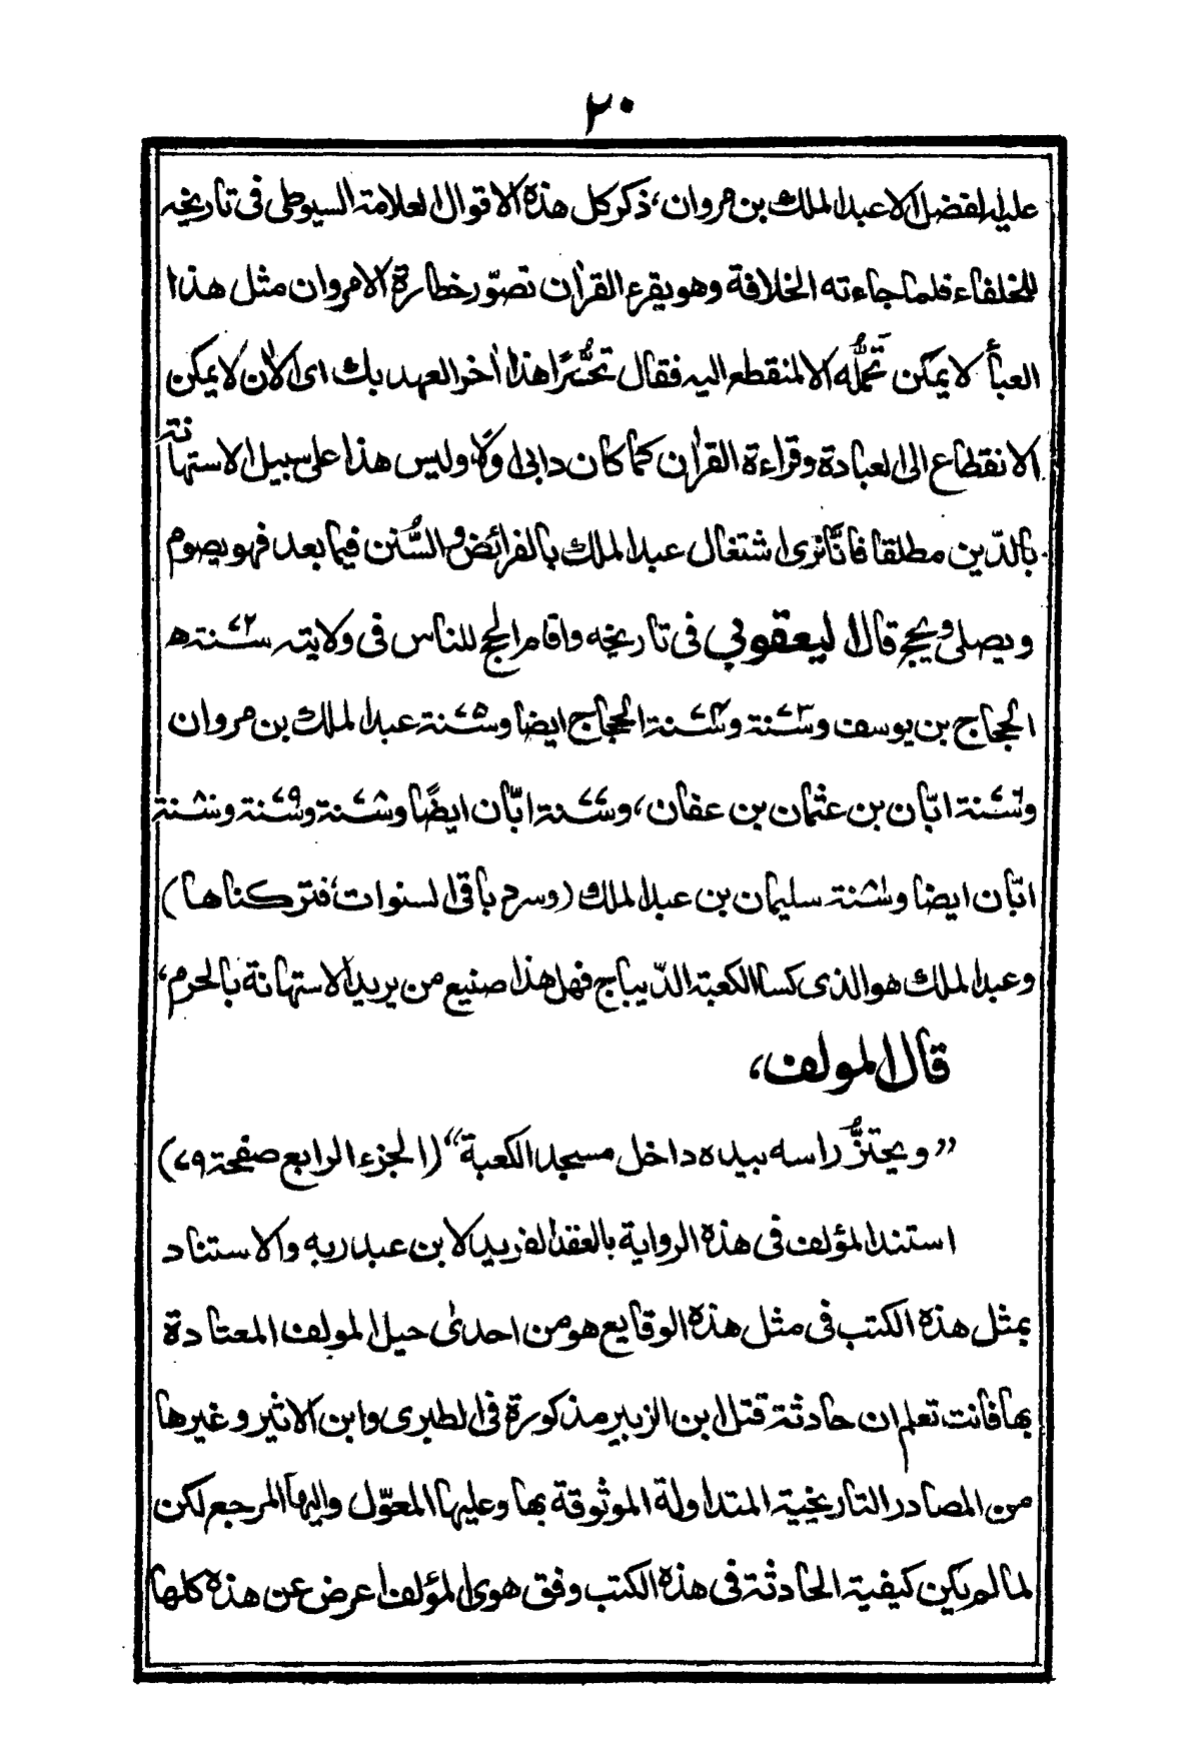 ٢٠
عليه الفضل الا عبد الملك بن مروان، ذكر كل هذه الاقوال العلامة السيوطى فى تاريخه
للخلفاء فلما جاءته الخلافة وهو يقرء القرأن تصوّر خطارة الامر وان مثل هذا
العبأ لا يمكن تَحمُّله الا لمنقطع اليه فقال تحسُّرًا هذا أخر العهد بك اى الأن لا يمكن
الانقطاع الى العبادة وقراءة القرأن كما كان دابى اولًا وليس هذا على سبيل الاستهانة
بالدّين مطلقا فانّا نرى اشتغال عبد الملك بالفرائض والسُّنن فيما بعد فهو يصوم
ويصلى ويحج قال اليعقوبي فى تاريخه واقام الحج للناس فى ولايته سنة ٧٢ھ
الحجاج بن يوسف وسنة ٧٣ وسنة ٧٤ الحجاج ايضا وسنة ٧٥ عبد الملك بن مروان
وسنة ٧٦ ابّان بن عثمان بن عفان، وسنة ٧٧ ابّان ايضًا وسنة ٧٨ وسنة ٧٩ وسنة ٨٠
ابّان ايضا وسنة ٨١ سليمان بن عبد الملك (وسرد باقى السنوات، فتركناها)
وعبد الملك هو الذى كسا الكعبة الدّيباج فهل هذا صنيع من يريد الاستهانة بالحرم،
قال المولف،
”ويحتزُّ راسه بيده داخل مسجد الكعبة“ (الجزء الرابع صفحة ٧٩)
استند المؤلف فى هذه الرواية بالعقد الفريد لابن عبد ربه والاستناد
بمثل هذه الكتب فى مثل هذه الوقايع هو من احدىٰ حيل المولف المعتادة
بها فانت تعلم ان حادثة قتل ابن الزبير مذكورة فى الطبرى وابن الاثير وغيرها
من المصادر التاريخية المتداولة الموثوقة بها وعليها المعوّل واليها المرجع لكن
لما لم يكن كيفية الحادثة فى هذه الكتب وفق هوى المؤلف اعرض عن هذه كلها